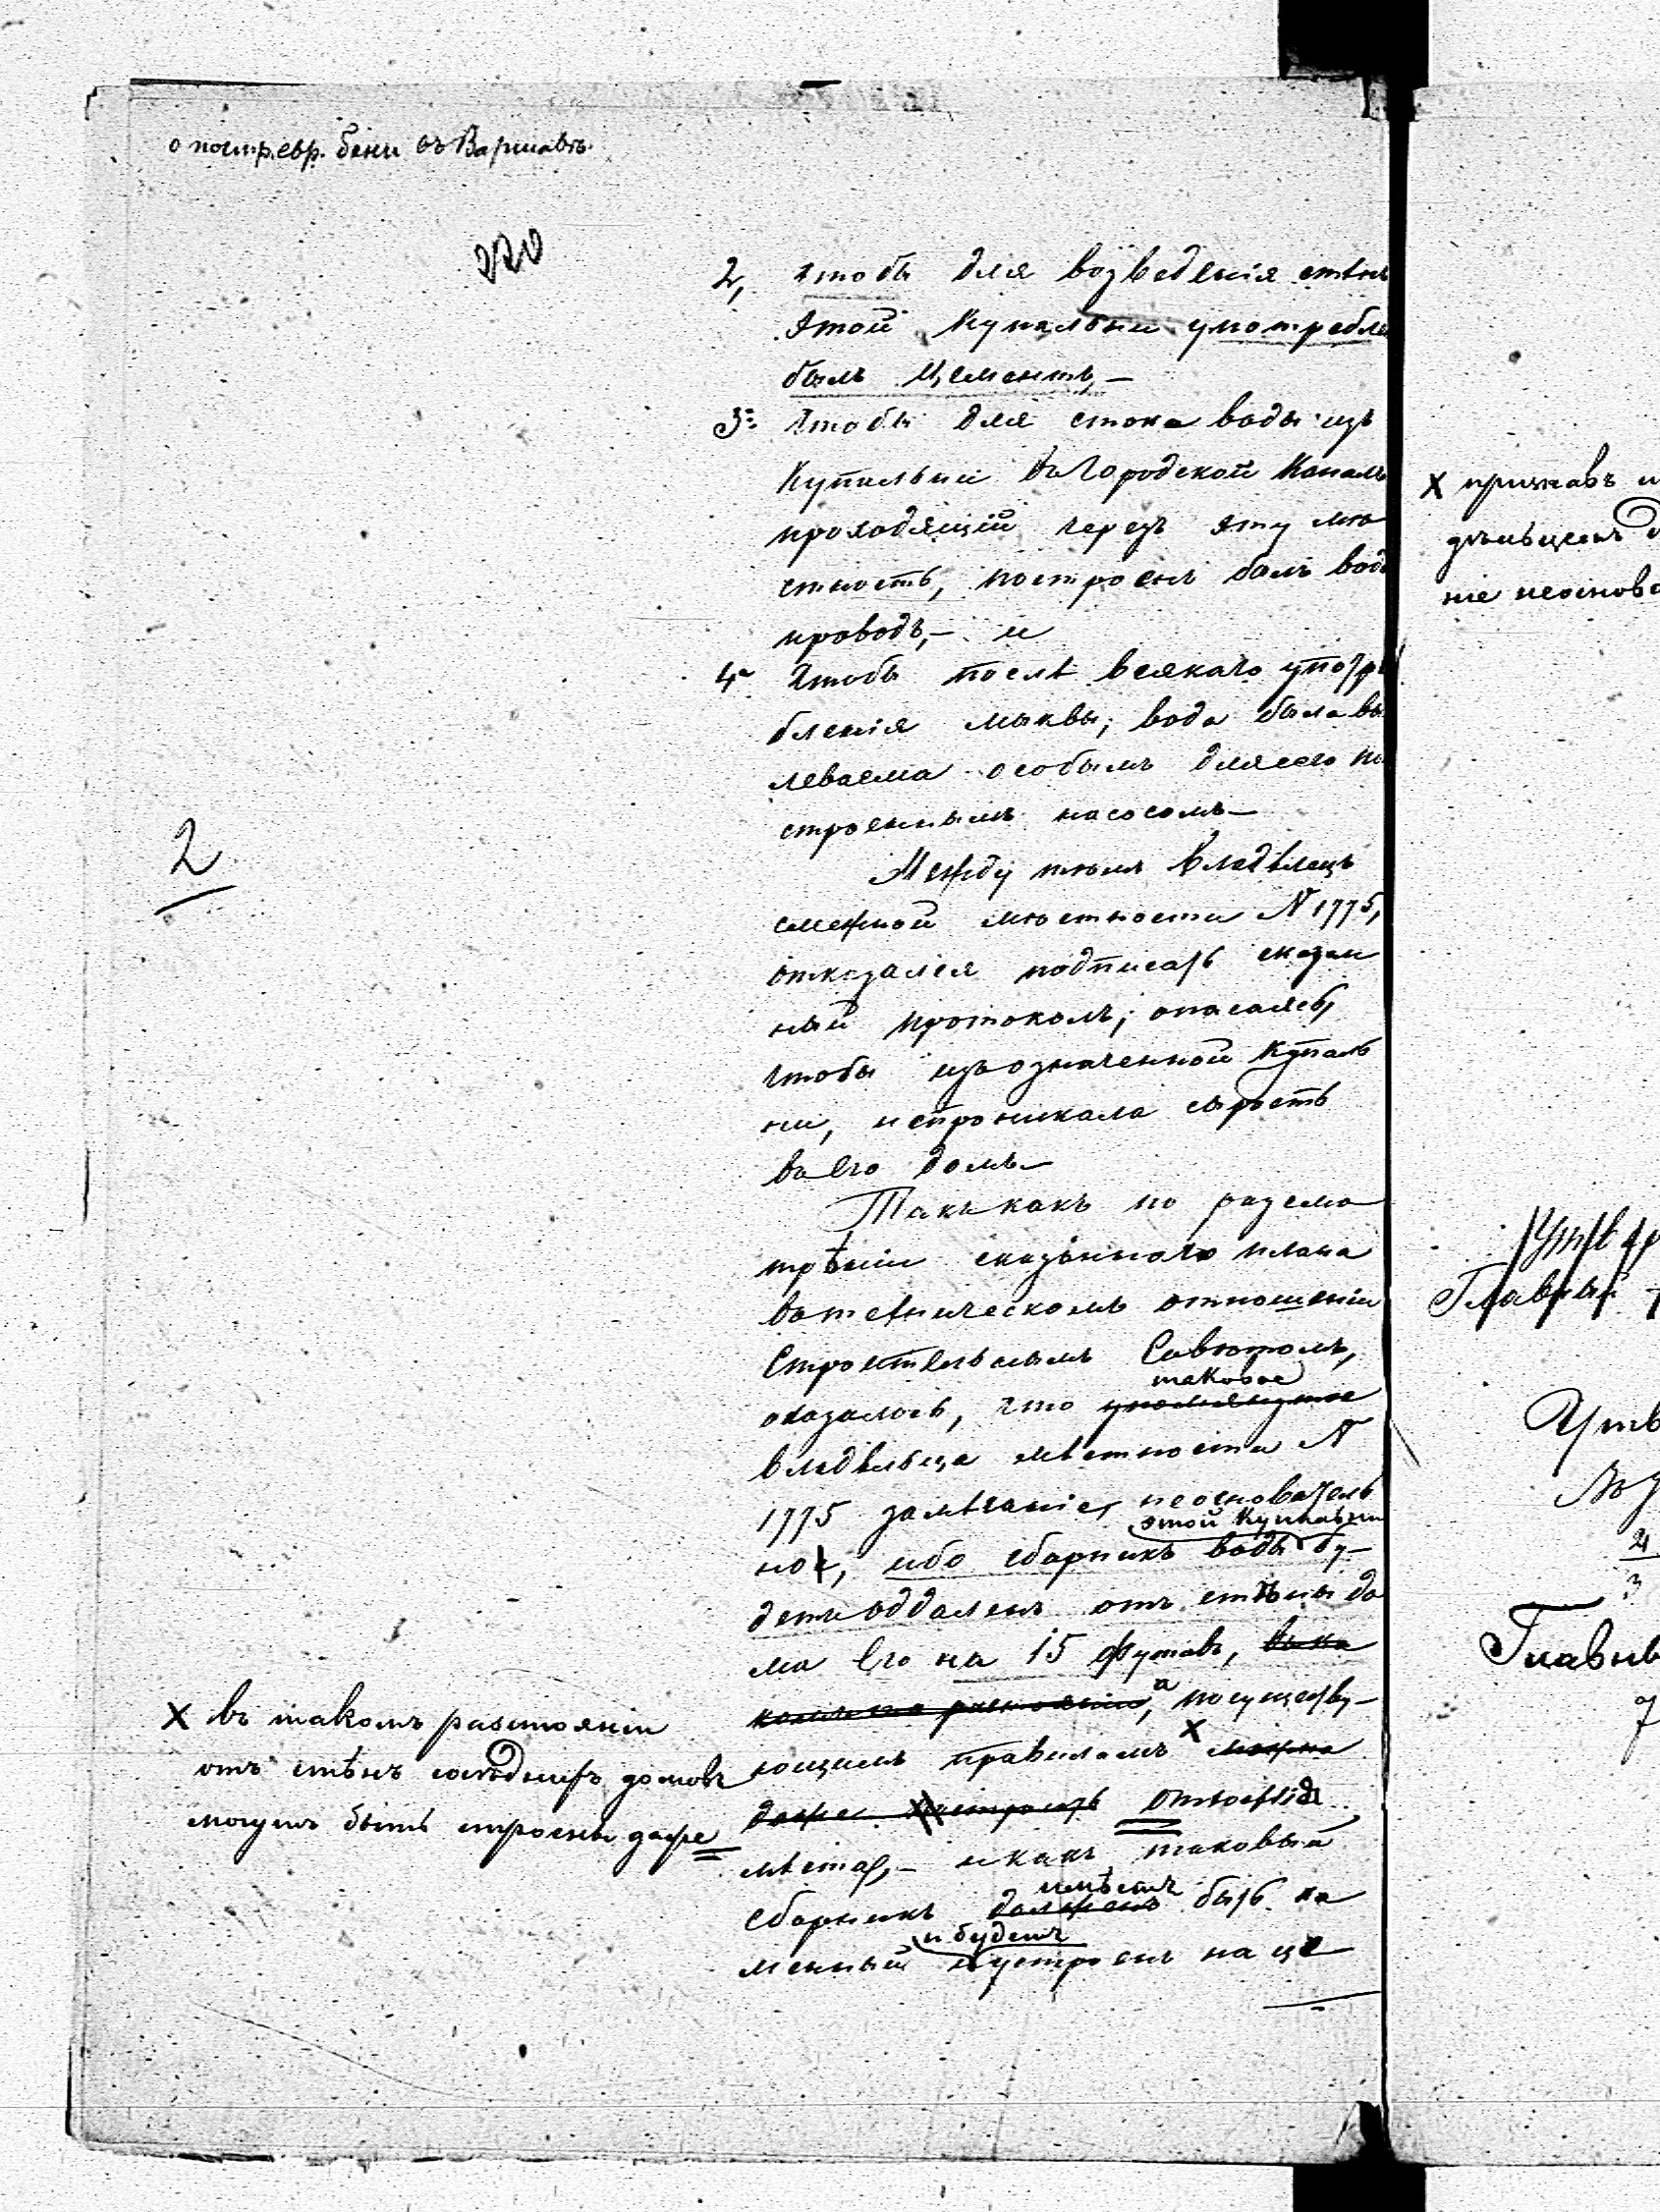 о постр. евр. бани въ Варшавѣ.
220
2, чтобы для возведенія стѣнъ
этой купальни употребле
былъ цементъ, —
3= чтобы для стока воды изъ
Купальни въ Городской Каналъ
проходящій черезъ эту мѣ
стность, построенъ былъ водо
проводъ, — и
4= чтобы послѣ всякаго употре
бленія мыквы, вода была вы
леваема особымъ для сего по
строеннымъ насосомъ —
2
Между тѣмъ Владѣлецъ
смежной мѣстности N 1775,
отказался подписать сказан
ный протоколъ, опасаясь,
чтобы изъ означенной Купаль
ни, непроникала сырость
въ Его домъ —
Такъ какъ по разсмо
трѣніи сказаннаго плана
въ техническомъ отношеніи
Строительнымъ Совѣтомъ,
таковое
оказалось, что упомянутое
владѣльца мѣстности N
1775 замѣчаніе, неосновател
этой Купальни
но, ибо сборникъ воды бу-
детъ отдаленъ отъ стѣны до
ма Его на 15 футовъ,
а
разстояніи, по существу-
ющимъ правиламъ х можно
даже построить отхожія
мѣста, — и какъ таковый
имѣетъ
сборникъ долженъ быть ка
и будетъ
менный и устроенъ на це
х въ такомъ разстояніи
отъ стѣнъ сосѣднихъ домовъ
могутъ быть строены даже
х признавъ
ніе неоснова
Утвер
Главный
Утв
Главны